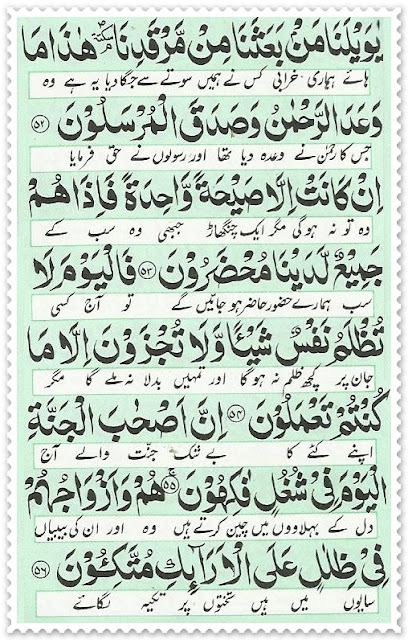 يٰوَيْلَنَا مَنْۢ بَعَثَنَا مِنْ مَّرْقَدِنَا ۘؐ هٰذَا مَا
ہائے ہماری خرابی کس نے ہمیں سوتے سے جگا دیا یہ ہے وہ
وَعَدَ الرَّحْمٰنُ وَصَدَقَ الْمُرْسَلُوْنَ ﴿۵۲﴾
جس کا رحمٰن نے وعدہ دیا تھا اور رسولوں نے حق فرمایا
اِنْ كَانَتْ اِلَّا صَيْحَةً وَّاحِدَةً فَاِذَا هُمْ
وہ تو نہ ہوگی مگر ایک چنگھاڑ جبھی وہ سب کے
جَمِيْعٌ لَّدَيْنَا مُحْضَرُوْنَ ﴿۵۳﴾ فَالْيَوْمَ لَا
سب ہمارے حضور حاضر ہو جائیں گے تو آج کسی
تُظْلَمُ نَفْسٌ شَيْـًٔا وَّلَا تُجْزَوْنَ اِلَّا مَا
جان پر کچھ ظلم نہ ہوگا اور تمہیں بدلا نہ ملے گا مگر
كُنْتُمْ تَعْمَلُوْنَ ﴿۵۴﴾ اِنَّ اَصْحٰبَ الْجَنَّةِ
اپنے کئے کا بے شک جنّت والے آج
الْيَوْمَ فِيْ شُغُلٍ فٰكِهُوْنَ ﴿۵۵﴾ هُمْ وَاَزْوَاجُهُمْ
دل کے بہلاووں میں چین کرتے ہیں وہ اور ان کی بیبیاں
فِيْ ظِلٰلٍ عَلَى الْاَرَآئِكِ مُتَّكِـُٔوْنَ ﴿۵۶﴾
سایوں میں ہیں تختوں پر تکیہ لگائے